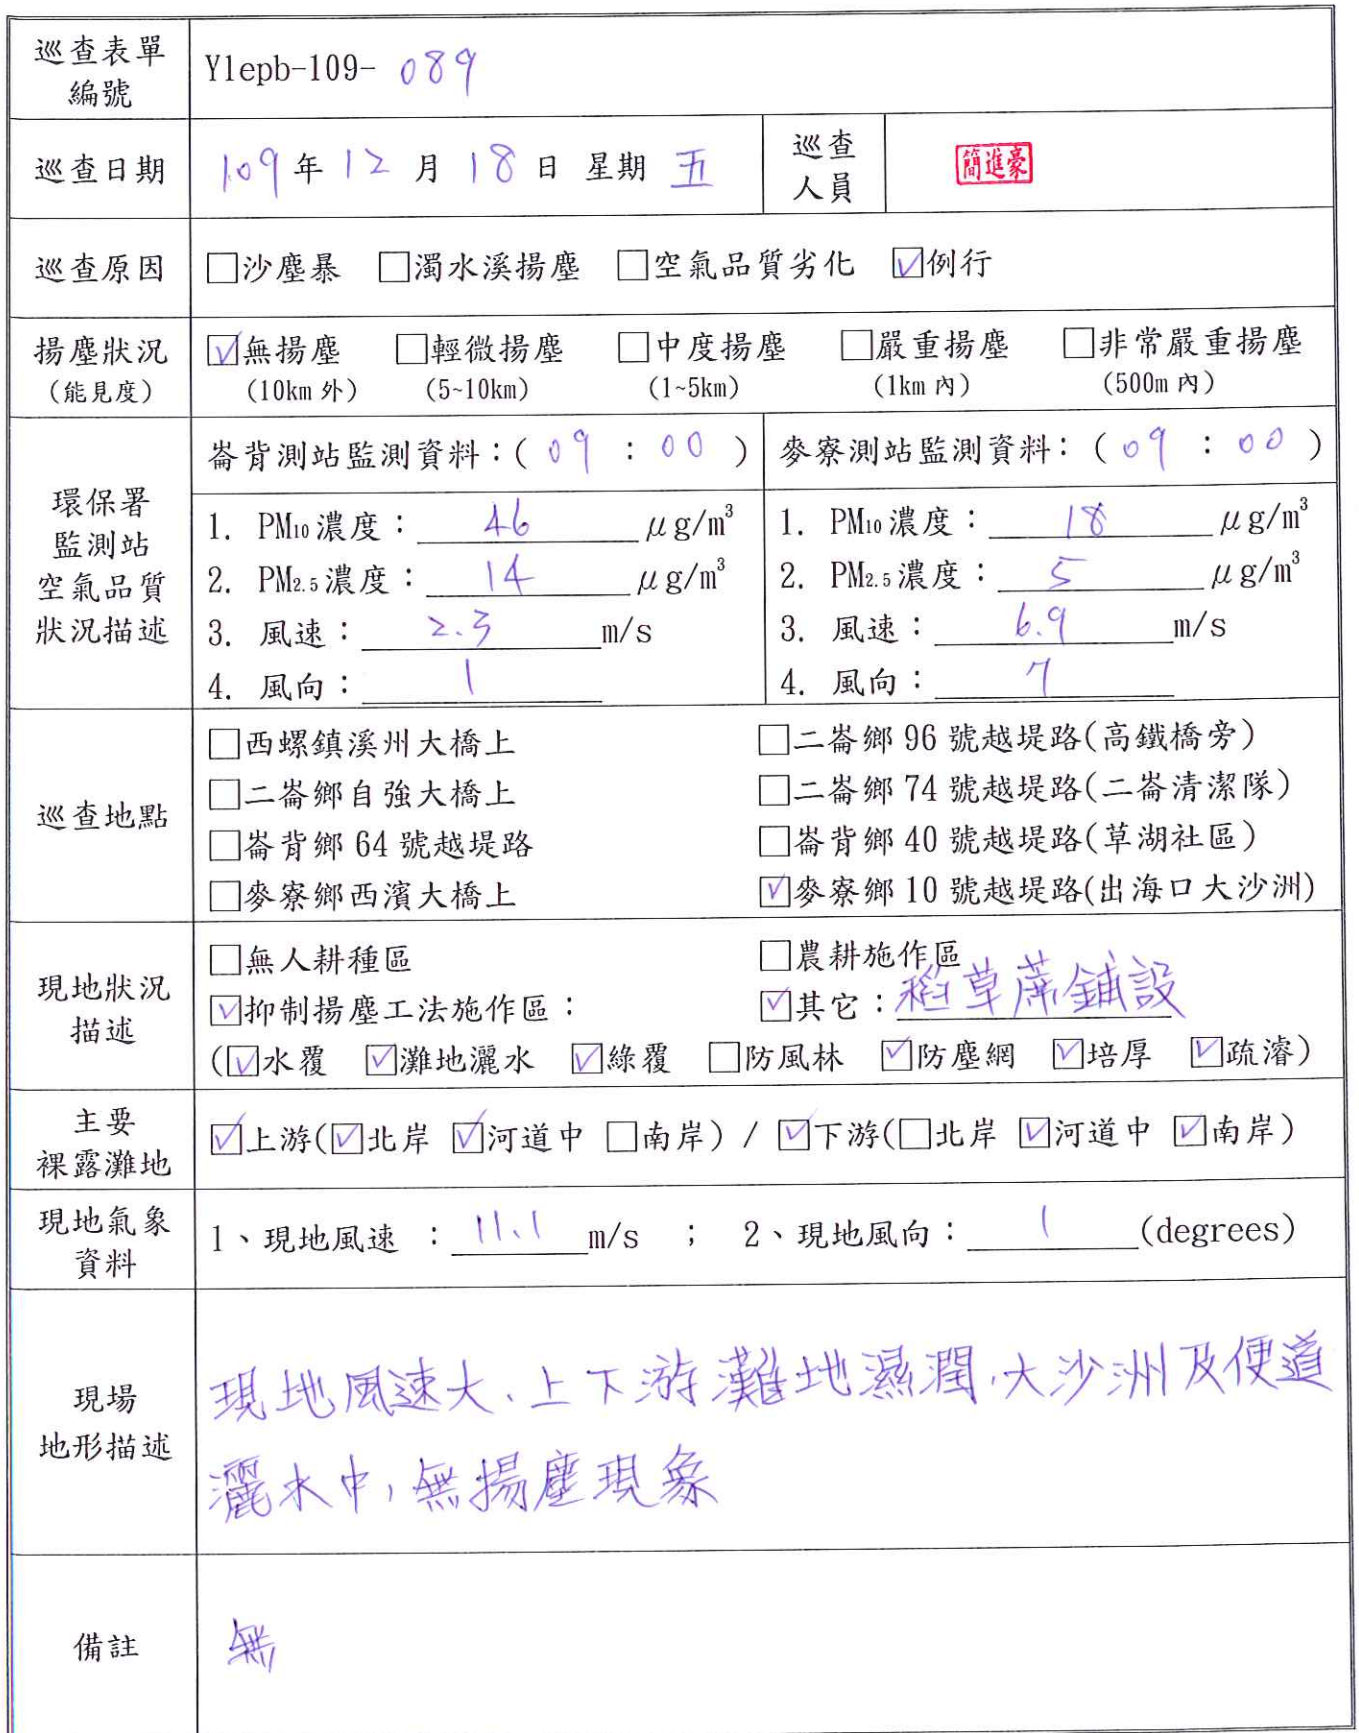 巡查表單編號 Ylepb-109- 089
巡查日期 109年12月18日 星期五 巡查人員 簡進豪
巡查原因 □沙塵暴 □濁水溪揚塵 □空氣品質劣化 ☑例行
揚塵狀況 ☑無揚塵 □輕微揚塵 □中度揚塵 □嚴重揚塵 □非常嚴重揚塵
(能見度) (10km 外) (5~10km) (1~5km) (1km 內) (500m 內)
環保署監測站空氣品質狀況描述
崙背測站監測資料：( 09 : 00 )
1. PM10濃度： 46 μg/m³
2. PM2.5濃度： 14 μg/m³
3. 風速： 2.3 m/s
4. 風向： 1
麥寮測站監測資料：( 09 : 00 )
1. PM10濃度： 18 μg/m³
2. PM2.5濃度： 5 μg/m³
3. 風速： 6.9 m/s
4. 風向： 7
巡查地點
□西螺鎮溪州大橋上 □二崙鄉 96 號越堤路(高鐵橋旁)
□二崙鄉自強大橋上 □二崙鄉 74 號越堤路(二崙清潔隊)
□崙背鄉 64 號越堤路 □崙背鄉 40 號越堤路(草湖社區)
□麥寮鄉西濱大橋上 ☑麥寮鄉 10 號越堤路(出海口大沙洲)
現地狀況描述
□無人耕種區 □農耕施作區
☑抑制揚塵工法施作區： ☑其它：稻草蓆鋪設
(☑水覆 ☑灘地灑水 ☑綠覆 □防風林 ☑防塵網 ☑培厚 ☑疏濬)
主要裸露灘地 ☑上游(☑北岸 ☑河道中 □南岸) / ☑下游(□北岸 ☑河道中 ☑南岸)
現地氣象資料 1、現地風速 ： 11.1 m/s ； 2、現地風向： 1 (degrees)
現場地形描述
現地風速大、上下游灘地濕潤,大沙洲及便道
灑水中,無揚塵現象
備註 無